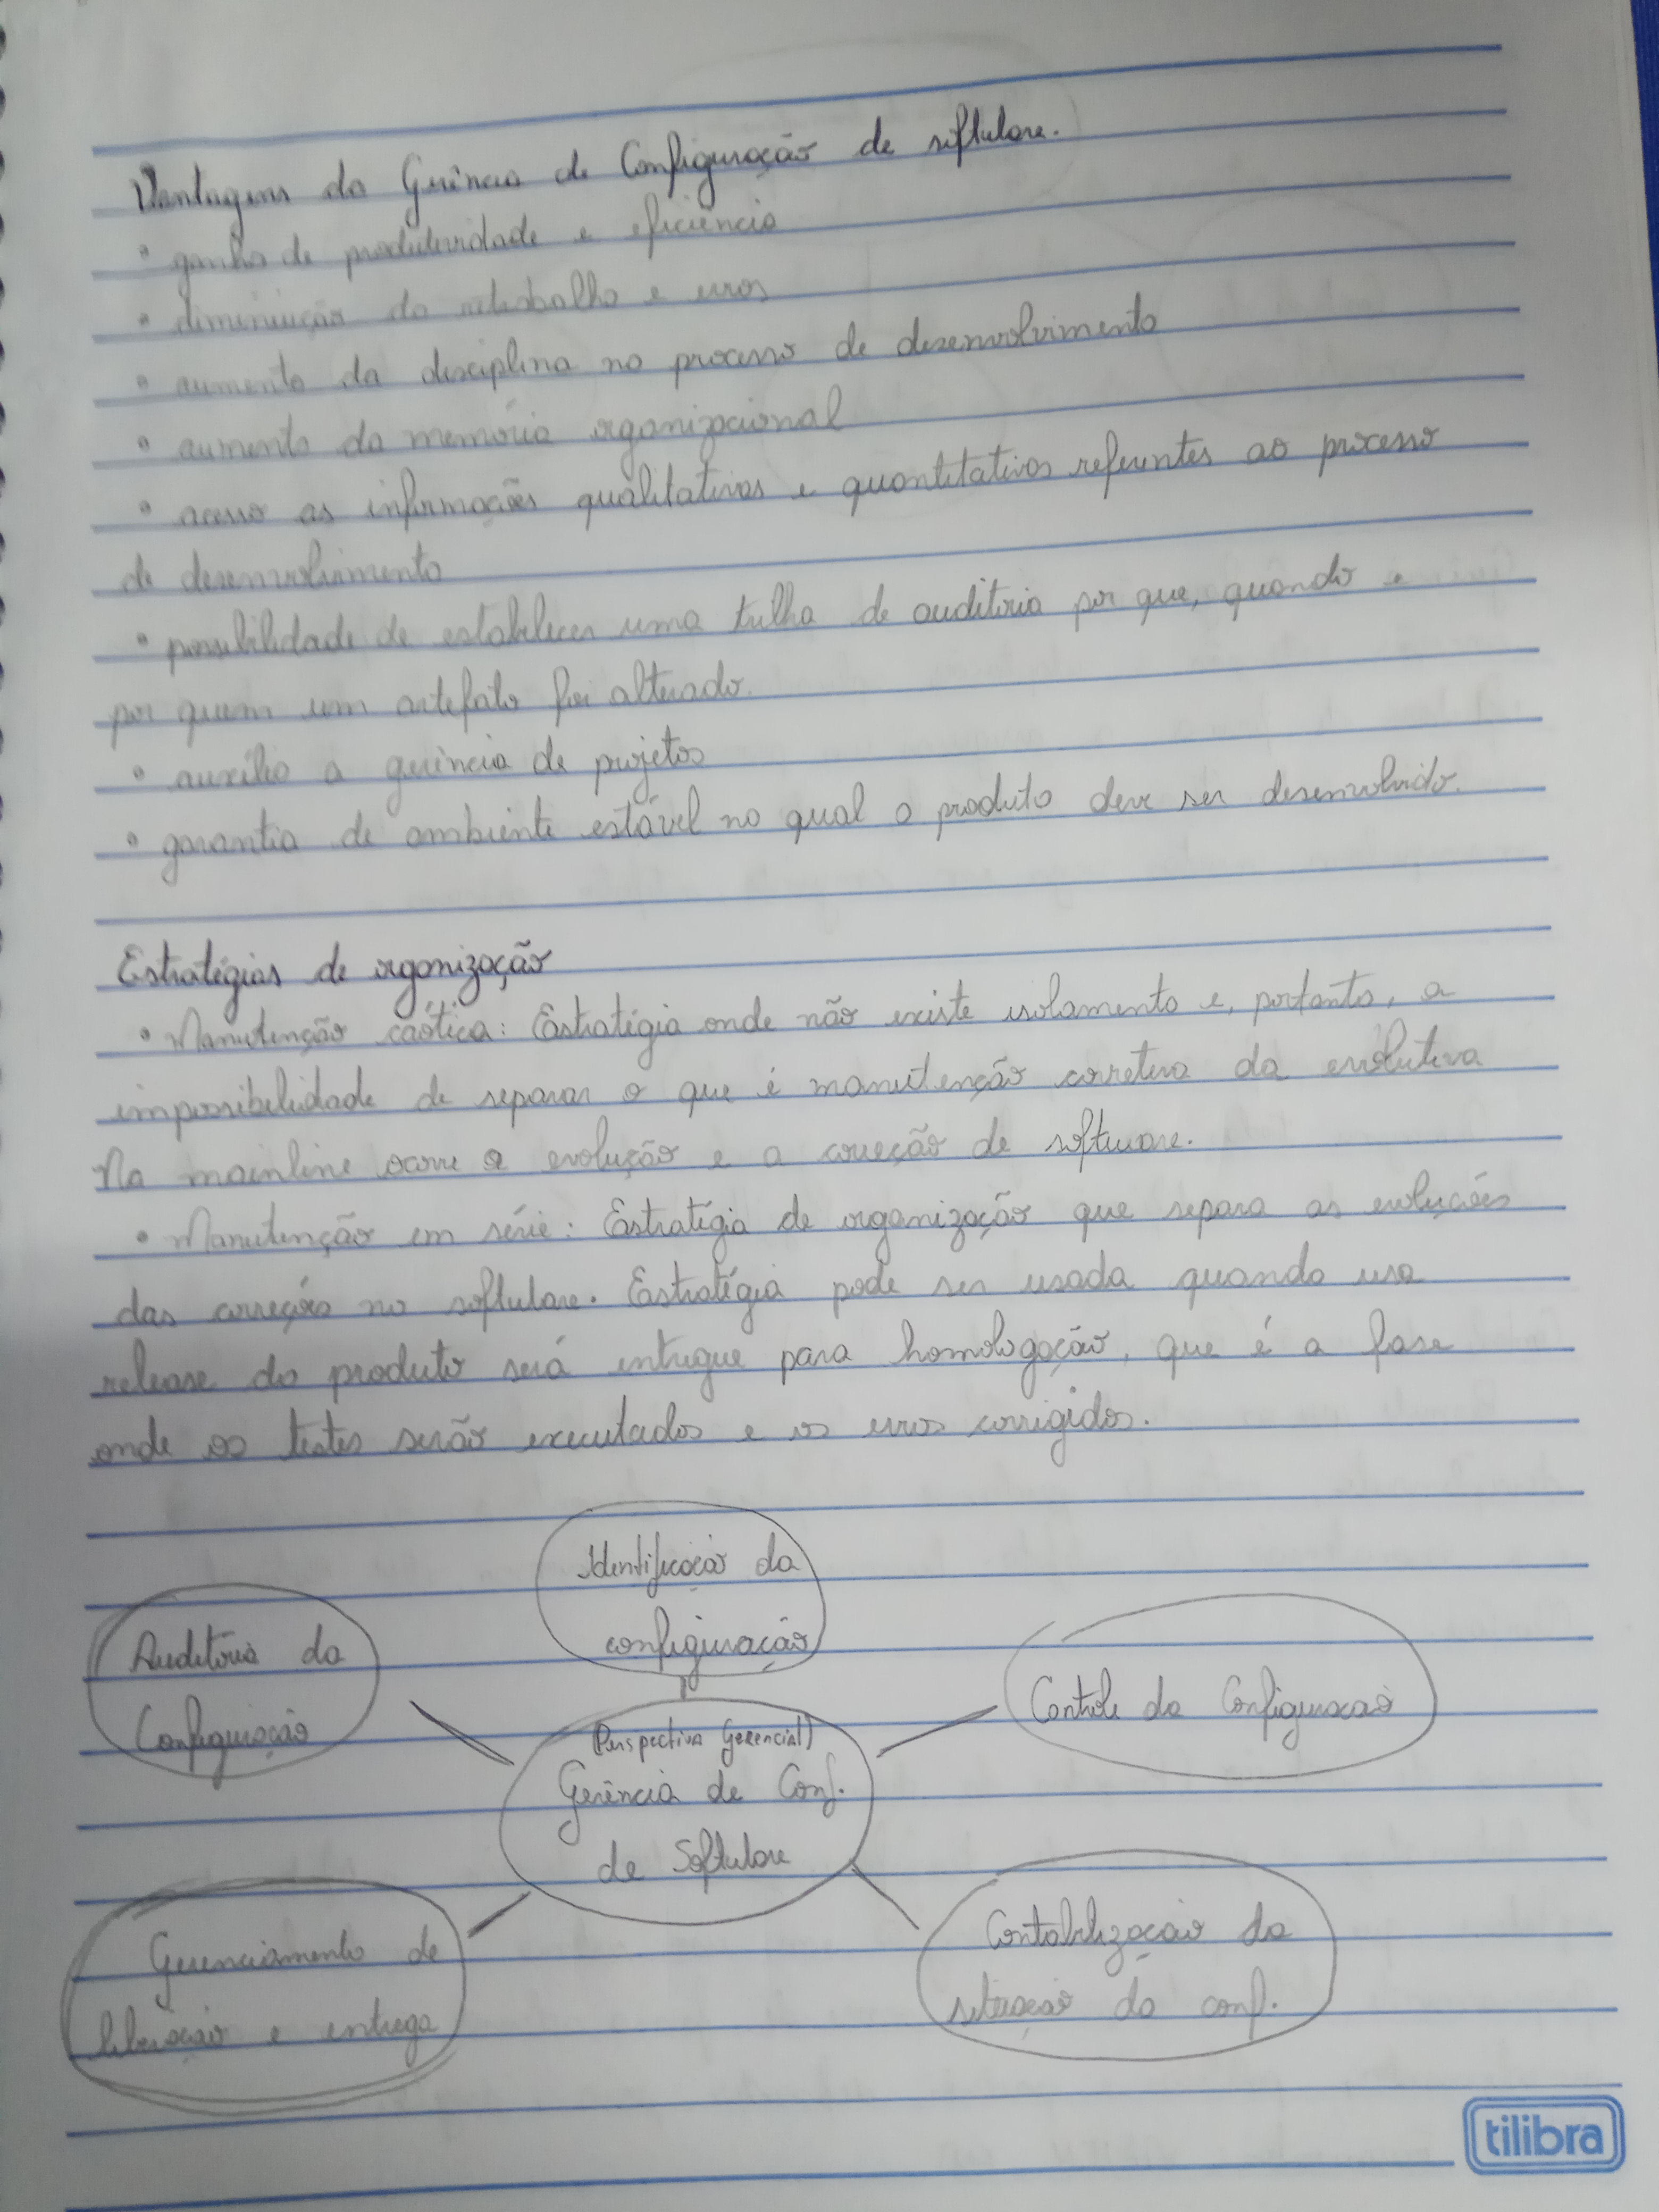 Vantagens da Gerência de Configuração de software.
• ganho de produtividade e eficiência
• diminuição do retrabalho e erros
• aumento da disciplina no processo de desenvolvimento
• aumento da memória organizacional
• acesso as informações qualitativas e quantitativas referentes ao processo
de desenvolvimento
• possibilidade de estabelecer uma trilha de auditoria por que, quando e
por quem um artefato foi alterado.
• auxílio a gerência de projetos
• garantia de ambiente estável no qual o produto deve ser desenvolvido.
Estratégias de organização
• Manutenção caótica: Estratégia onde não existe isolamento e, portanto, a
impossibilidade de separar o que é manutenção corretiva da evolutiva
Na mainline ocorre a evolução e a correção de software.
• Manutenção em série: Estratégia de organização que separa as evoluções
das correções no software. Estratégia pode ser usada quando uma
release do produto será entregue para homologação, que é a fase
onde os testes serão executados e os erros corrigidos.
Identificação da
configuração
Auditoria da
Configuração
Controle da Configuração
(Perspectiva Gerencial)
Gerência de Conf.
de Software
Gerenciamento de
liberação e entrega
Contabilização da
situação da conf.
tilibra